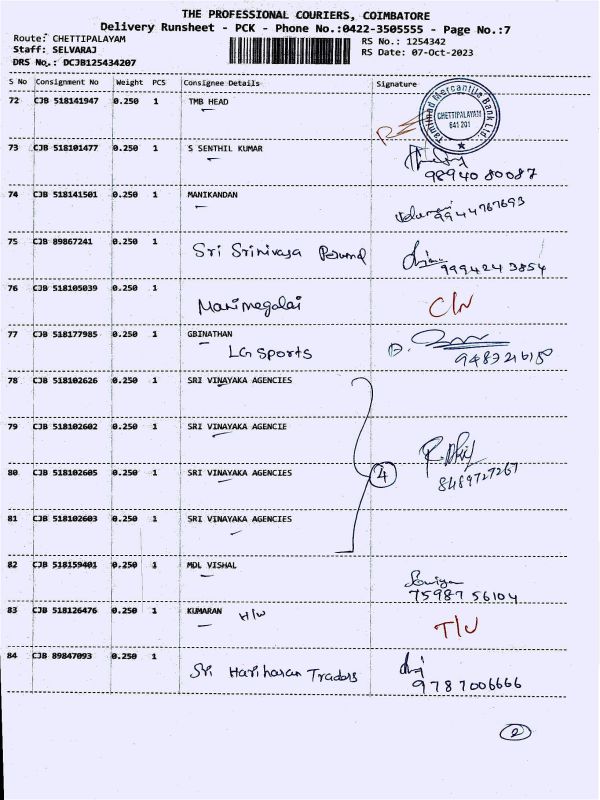 THE PROFESSIONAL COURIERS, COIMBATORE
Delivery Runsheet - PCK - Phone No.:0422-3505555 - Page No.:7
Route: CHETTIPALAYAM RS No.: 1254342
Staff: SELVARAJ RS Date: 07-Oct-2023
DRS No.: DCJB125434207
S No Consignment No Weight PCS Consignee Details Signature
72 CJB 518141947 0.250 1 TMB HEAD
Tamilnad Mercantile Bank Ltd.
CHETTIPALAYAM
641 201
73 CJB 518101477 0.250 1 S SENTHIL KUMAR
9894080087
74 CJB 518141501 0.250 1 MANIKANDAN
9944767693
75 CJB 89867241 0.250 1
Sri Srinivasa Perumal
9994243854
76 CJB 518105039 0.250 1
Manimegalai C/N
77 CJB 518177985 0.250 1 GBINATHAN
LG Sports
78 CJB 518102626 0.250 1 SRI VINAYAKA AGENCIES
79 CJB 518102602 0.250 1 SRI VINAYAKA AGENCIE
80 CJB 518102605 0.250 1 SRI VINAYAKA AGENCIES
4
8489727267
81 CJB 518102603 0.250 1 SRI VINAYAKA AGENCIES
82 CJB 518159401 0.250 1 MDL VISHAL
75987 56104
83 CJB 518126476 0.250 1 KUMARAN H/W
T/U
84 CJB 89847093 0.250 1
Sri Hariharan Traders
9787006666
2